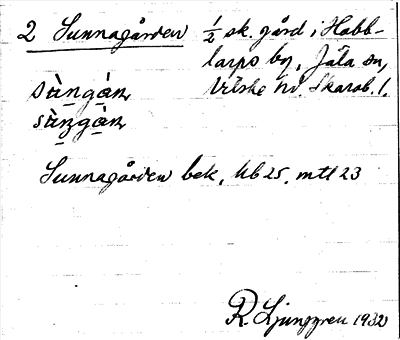 2 Sunnagården ½ sk. gård i Habb-
larps by, Jäla sn,
Vilske hd. Skarab. l.
sùngàn
sùngàn
Sunnagården bek. Ub 25, mtl 23
R. Ljunggren 1932